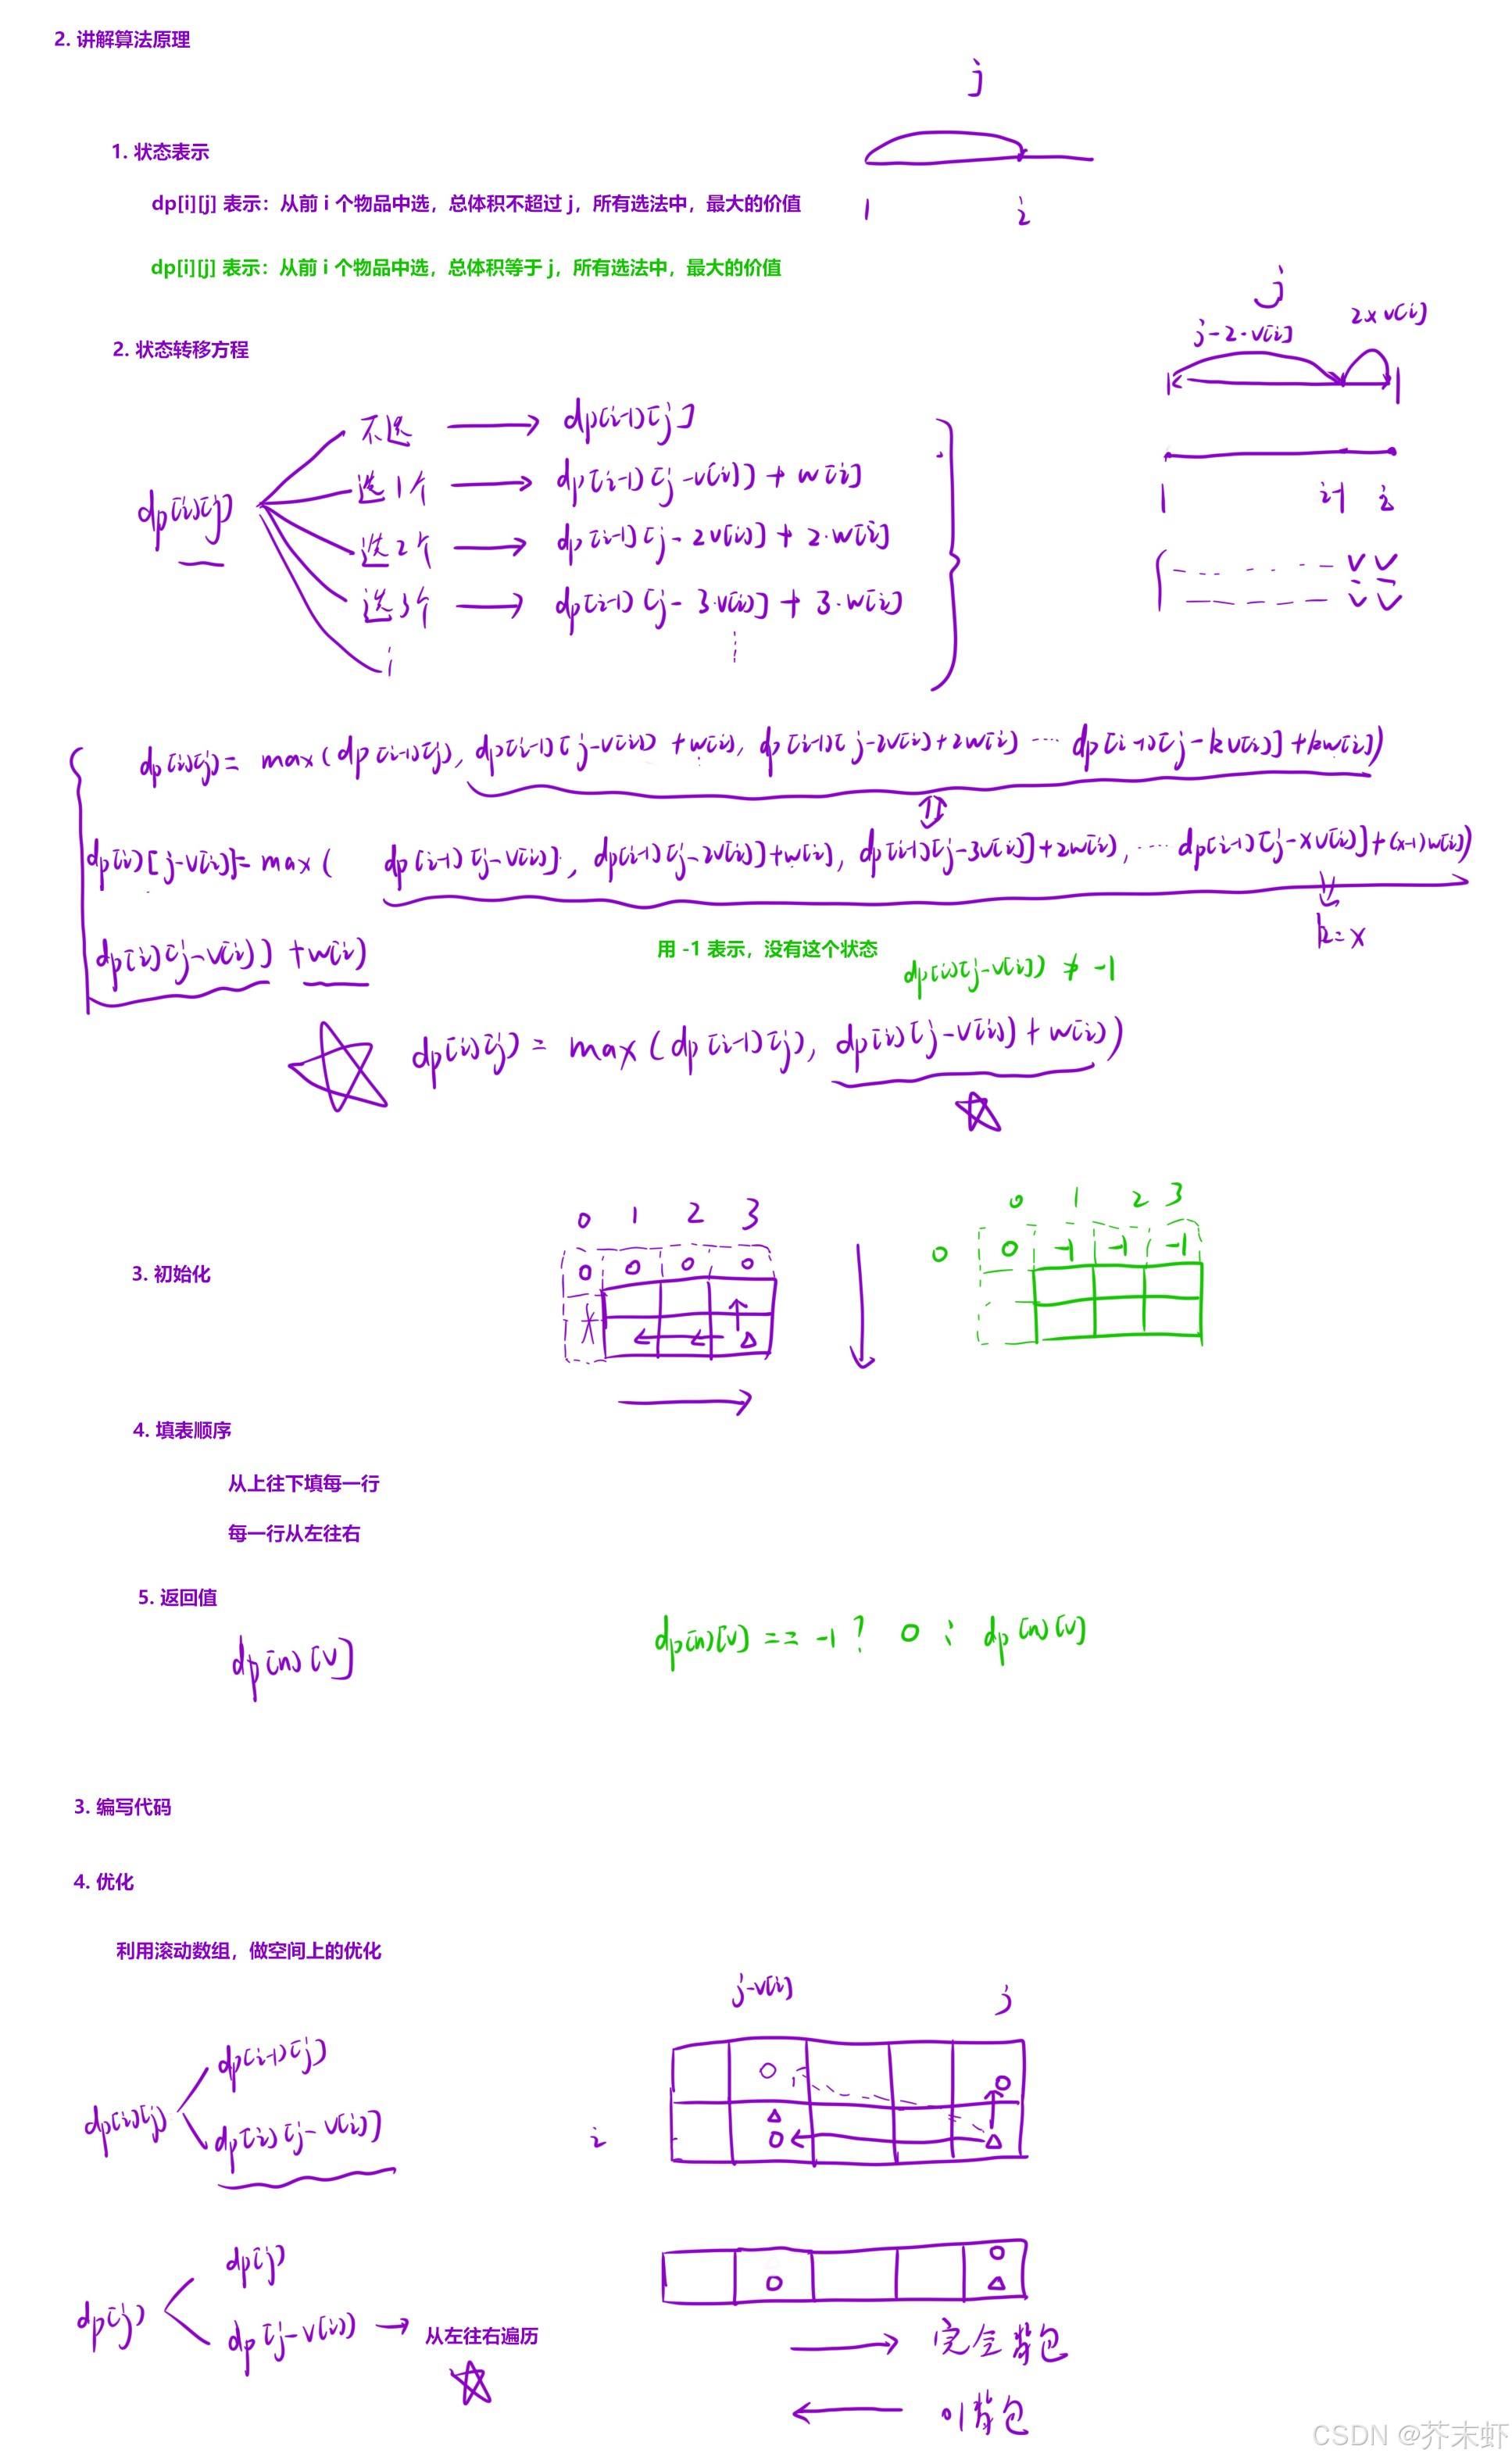 2. 讲解算法原理
j
1. 状态表示
dp[i][j] 表示：从前 i 个物品中选，总体积不超过 j，所有选法中，最大的价值
1 i
dp[i][j] 表示：从前 i 个物品中选，总体积等于 j，所有选法中，最大的价值
j
j-2·v[i] 2×v[i]
2. 状态转移方程
dp[i][j]
不选 → dp[i-1][j]
选1个 → dp[i-1][j-v[i]] + w[i]
选2个 → dp[i-1][j-2v[i]] + 2·w[i]
选3个 → dp[i-1][j-3·v[i]] + 3·w[i]
1 i-1 i
dp[i][j] = max(dp[i-1][j], dp[i-1][j-v[i]] + w[i], dp[i-1][j-2v[i]+2w[i] ... dp[i-1][j-kv[i]]+kw[i])
dp[i][j-v[i]] = max( dp[i-1][j-v[i]], dp[i-1][j-2v[i]]+w[i], dp[i-1][j-3v[i]]+2w[i], ... dp[i-1][j-xv[i]]+(x-1)w[i])
k=x
dp[i][j-v[i]] + w[i]
用 -1 表示，没有这个状态
dp[i][j-v[i]] ≠ -1
dp[i][j] = max(dp[i-1][j], dp[i][j-v[i]]+w[i])
3. 初始化
0 1 2 3
0 0 0 0
0 1 2 3
0 0 -1 -1 -1
4. 填表顺序
从上往下填每一行
每一行从左往右
5. 返回值
dp[n][V]
dp[n][V] == -1 ? 0 : dp[n][V]
3. 编写代码
4. 优化
利用滚动数组，做空间上的优化
j-v[i] j
dp[i][j]
dp[i-1][j]
dp[i][j-v[i]]
i
dp[j]
dp[j]
dp[j-v[i]] → 从左往右遍历
→ 完全背包
← 01背包
CSDN @芥末虾